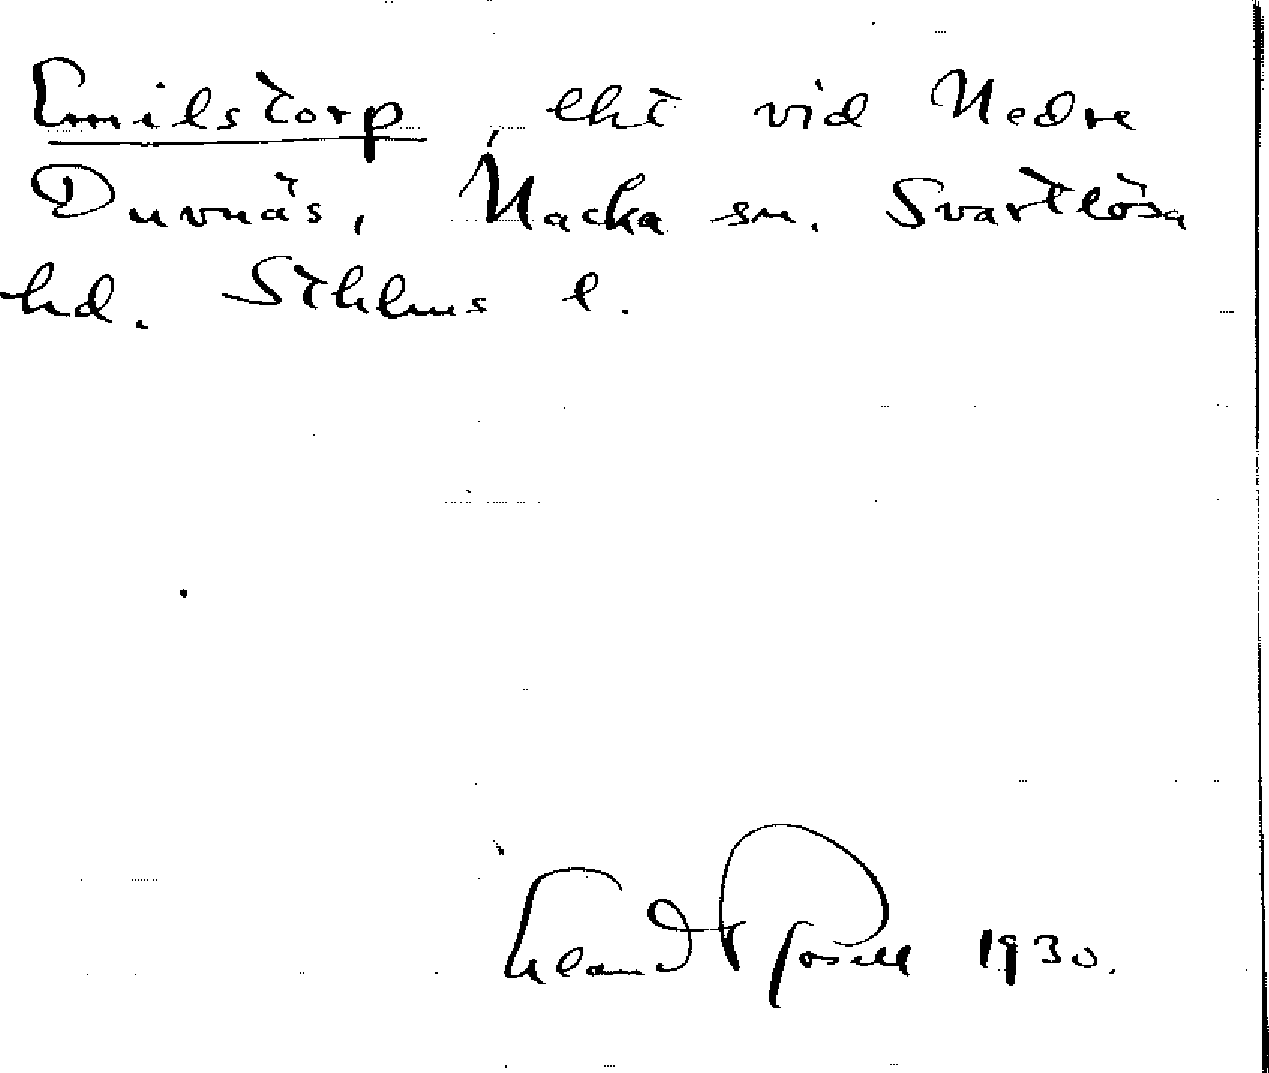 Emilstorp, lht vid Nedre
Duvnäs, Nacka sn. Svartlösa
hd. Sthlms l.
Erland Rosell 1930.